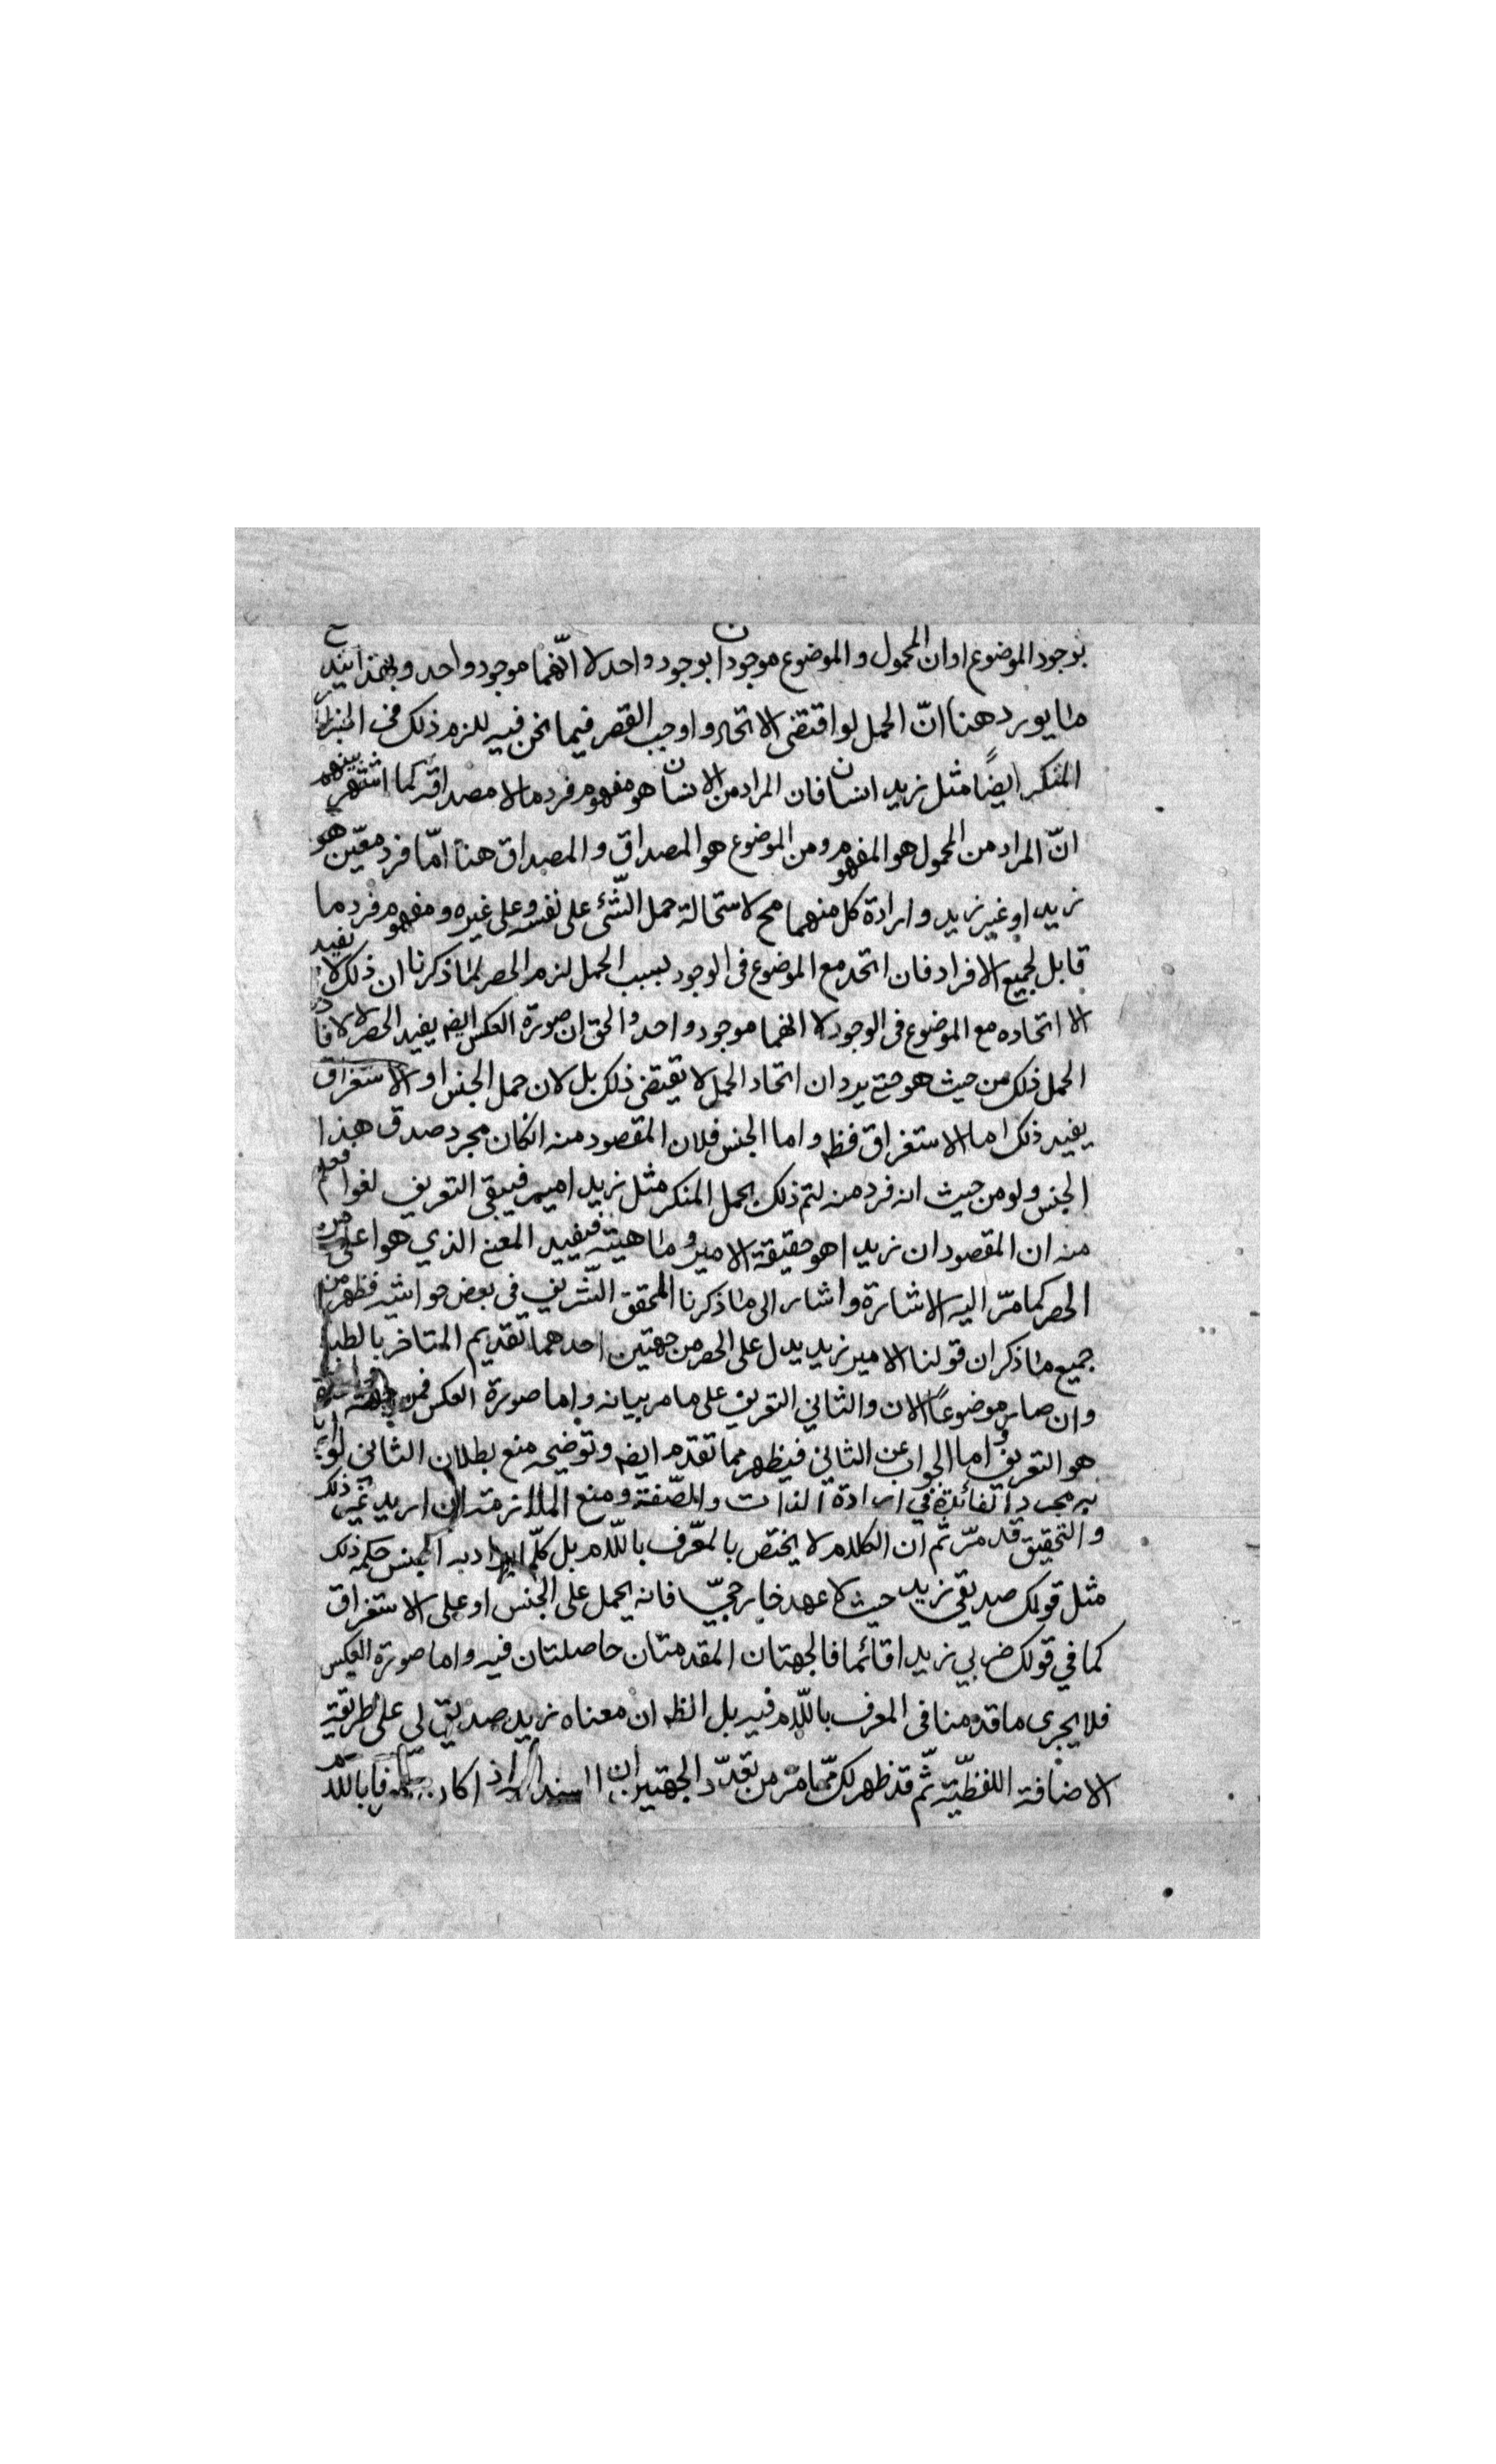 بوجود الموضوع او ان المحمول والموضوع موجودان بوجود واحد لا انّهما موجود واحد وبهذا يندفع
ما يورد هنا انّ الحمل لو اقتضى الاتحاد و اوجب القصر فيما نحن فيه للزم ذلك فى الخبر
المنكر ايضًا مثل زيد انسان فان المراد من الانسان هو مفهوم فرد ما لا مصداقه كما اشتهر بينهم
انّ المراد من المحمول هو المفهوم ومن الموضوع هو المصداق والمصداق هنا امّا فرد معّين هو
زيد او غير زيد وارادة كل منهما مح لاستحالة حمل الشّئ على نفسه وعلى غيره ومفهوم فرد ما
قابل لجميع الافراد فان اتحد مع الموضوع فى الوجود بسبب الحمل لزم الحصر لما ذكرنا ان ذلك لا يفيد
الا اتحاده مع الموضوع فى الوجود لا انهما موجود واحد والحق ان صورة العكس ايضم يفيد الحصر لا لافادة
الحمل ذلك من حيث هو حتى يرد ان اتحاد الحمل لا يقتضى ذلك بل لان حمل الجنس او الاستغراق
يفيد ذلك اما الاستغراق فظم واما الجنس فلان المقصود منه انكان مجرد صدق هذا
الجنس ولو من حيث انه فرد منه لتم ذلك بحمل المنكر مثل زيد امير فيبقى التعريف لغوا فعلم
منه ان المقصود ان زيدا هو حقيقة الامير وماهيته فيفيد المعنى الذي هو اعلى من
الحصر كما مرّ اليه الاشارة واشار الى ما ذكرنا المحقق الشّريف فى بعض حواشيه فظهر من
جميع ما ذكر ان قولنا الامير زيد يدل على الحصر من جهتين احدهما تقديم المتاخر بالطبع
وان صار موضوعًا الان والثاني التعريف على ما مر بيانه واما صورة العكس فمن جهة
هو التعريف واما الجواب عن الثاني فيظهر مما تقدم ايضم وتوضيحه منع بطلان الثانى لو
الفائدة في ارادة الذات والصّفة ومنع الملازمة ان اريد غير ذلك
والتحقيق قد مرّ ثم ان الكلام لا يختص بالمعّرف باللّام بل كلّما يراد به الجنس حكمه ذلك
مثل قولك صديقي زيد حيث لا عهد خارجيّا فانه يحمل على الجنس او على الاستغراق
كما في قولك ضربي زيدا قائما فالجهتان المقدمتان حاصلتان فيه واما صورة العكس
فلا يجرى ما قدمنا فى المعرف باللّام فيه بل الظم ان معناه زيد صديق لى على طريقة
الاضافة اللفظيّة ثّم قد ظهر لك ممّا مرّ من تعدّد الجهتين ان المسند